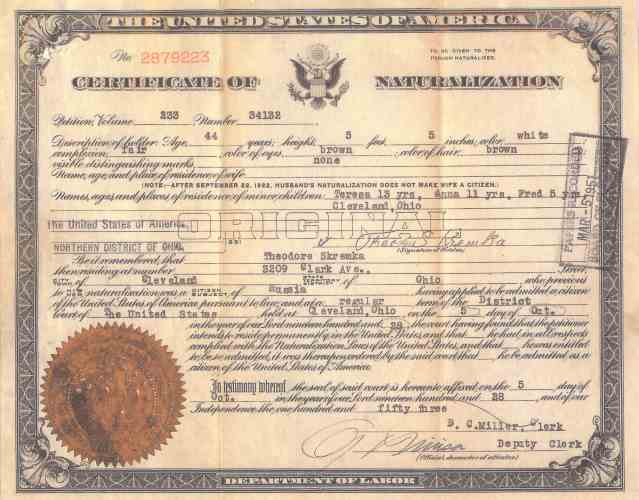 THE UNITED STATES OF AMERICA
No. 2879223
TO BE GIVEN TO THE
PERSON NATURALIZED.
CERTIFICATE OF NATURALIZATION
Petition, Volume 233 Number 34132
Description of holder: Age, 44 years; height, 5 feet, 5 inches; color, white
complexion, fair; color of eyes, brown; color of hair, brown
visible distinguishing marks, none
Name, age and place of residence of wife
(NOTE:-AFTER SEPTEMBER 22, 1922, HUSBAND'S NATURALIZATION DOES NOT MAKE WIFE A CITIZEN.)
Names, ages and places of residence of minor children Teresa 13 yrs, Anna 11 yrs, Fred 5 yrs
Cleveland, Ohio
The United States of America,
ORIGINAL
NORTHERN DISTRICT OF OHIO, SS:
(Signature of Holder)
MAR-5 1951
Be it remembered, that Theodore Skremka
then residing at number 3209 Clark Ave.,
CITY of Cleveland of Ohio who previous
to his naturalization was a CITIZEN SUBJECT of Russia having applied to be admitted a citizen
of the United States of America pursuant to law, and at a regular term of the District
Court of The United States held at Cleveland, Ohio on the 5 day of Oct.
in the year of our Lord nineteen hundred and 28 the court having found that the petitioner
intends to reside permanently in the United States, and that he had in all respects
complied with the Naturalization Laws of the United States, and that he was entitled
to be so admitted, it was thereupon ordered by the said court that he be admitted as a
citizen of the United States of America.
In testimony whereof the seal of said court is hereunto affixed on the 5 day of
Oct. in the year of our Lord nineteen hundred and 28 and of our
Independence the one hundred and fifty three
B. C. Miller, Clerk
Deputy Clerk
(Official character of attestor)
DEPARTMENT OF LABOR